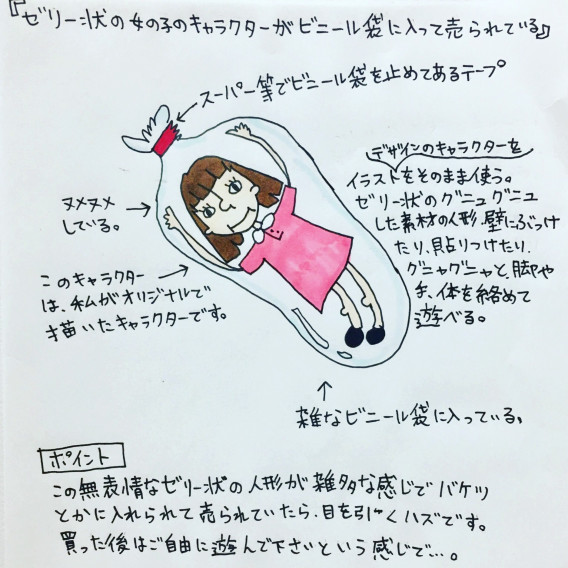 『ゼリー状の女の子のキャラクターがビニール袋に入って売られている』
スーパー等でビニール袋を止めてあるテープ
デザインのキャラクターを
イラストをそのまま使う。
ゼリー状のグニュグニュ
した素材の人形。壁にぶつけ
たり、貼りつけたり、
グニャグニャと、脚や
手、体を絡めて
遊べる。
ヌメヌメ
している。
このキャラクター
は、私がオリジナルで
描いたキャラクターです。
雑なビニール袋に入っている。
ポイント
この無表情なゼリー状の人形が雑多な感じでバケツ
とかに入れられて売られていたら、目を引くハズです。
買った後はご自由に遊んで下さいという感じで…。